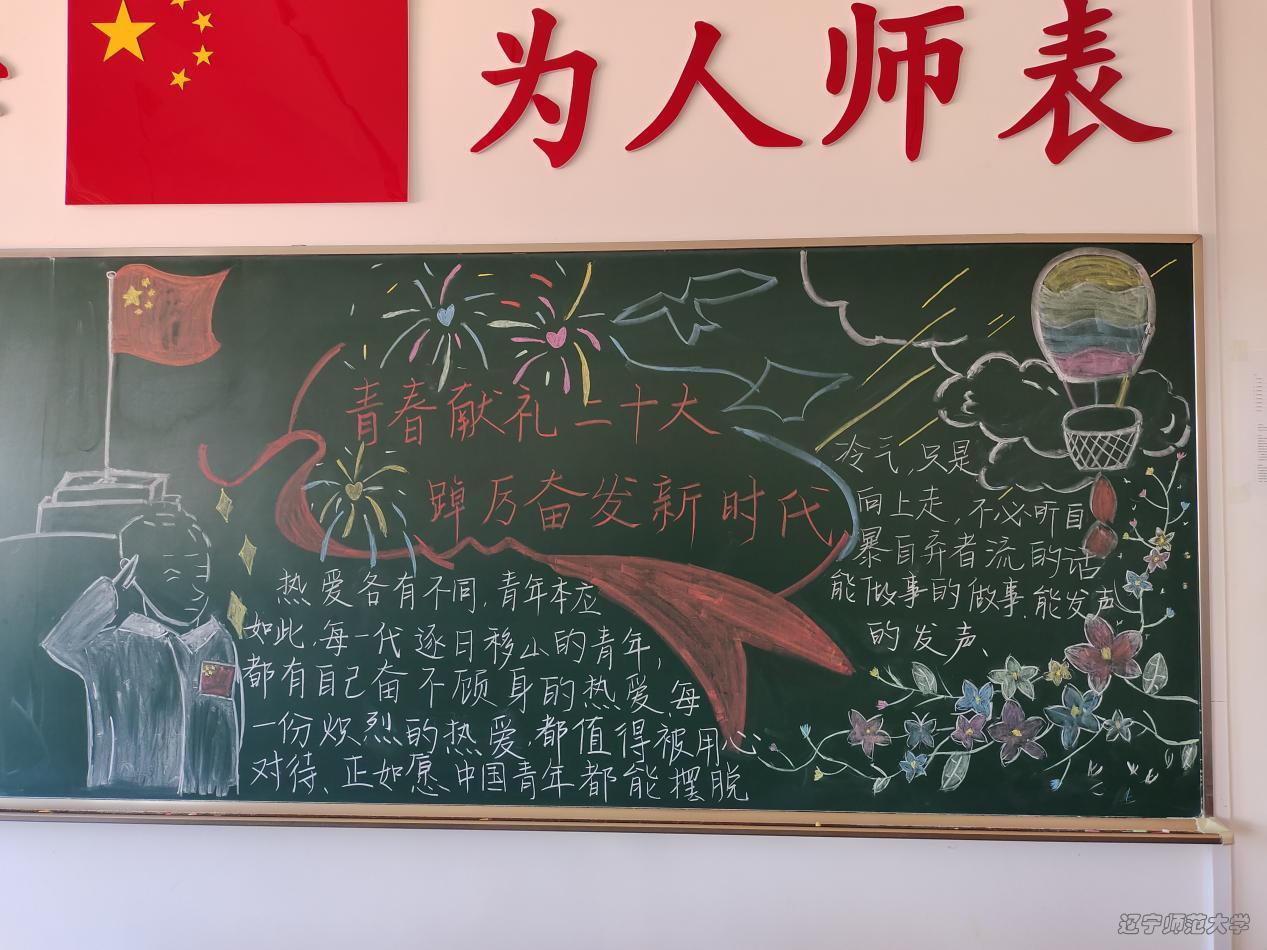 为人师表
青春献礼二十大
踔厉奋发新时代
热爱各有不同，青年本应
如此，每一代逐日移山的青年，
都有自己奋不顾身的热爱，每
一份炽烈的热爱，都值得被用心
对待、正如愿中国青年都能摆脱
冷气，只是
向上走，不必听自
暴自弃者流的话
能做事的做事，能发声
的发声、
辽宁师范大学